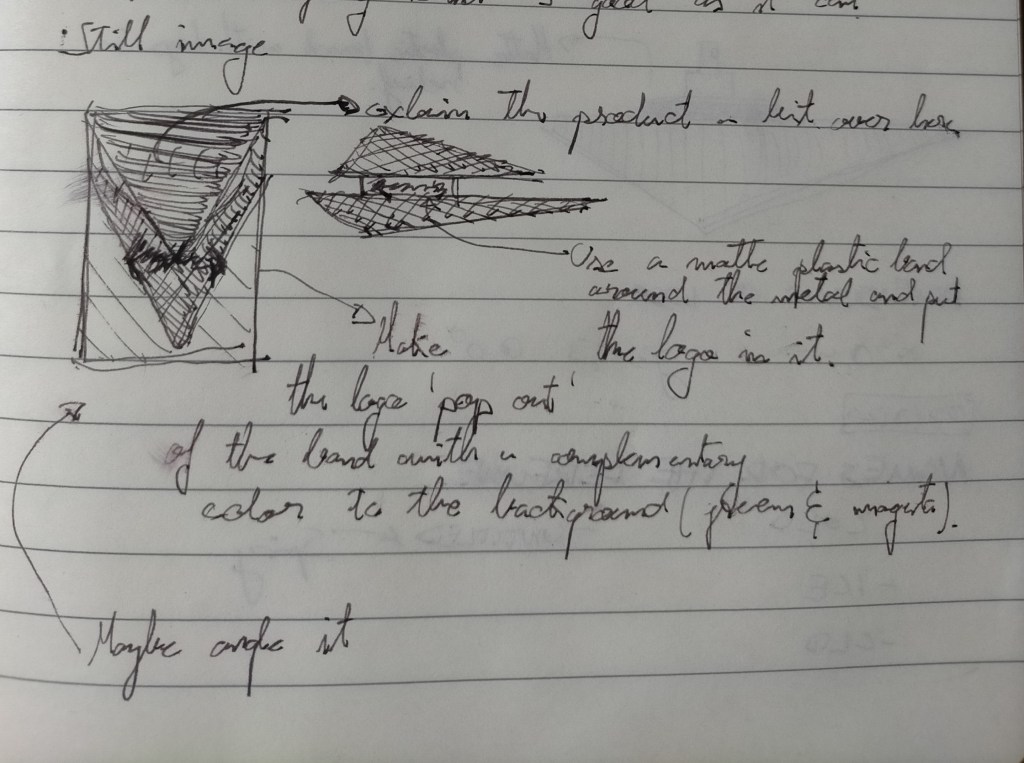 is good as it can
Still image
explain the product a bit over here
Use a matte plastic band
around the metal and put
the logo in it.
Make
the logo 'pop out'
of the band with a complementary
color to the background (greens & magenta).
Maybe angle it